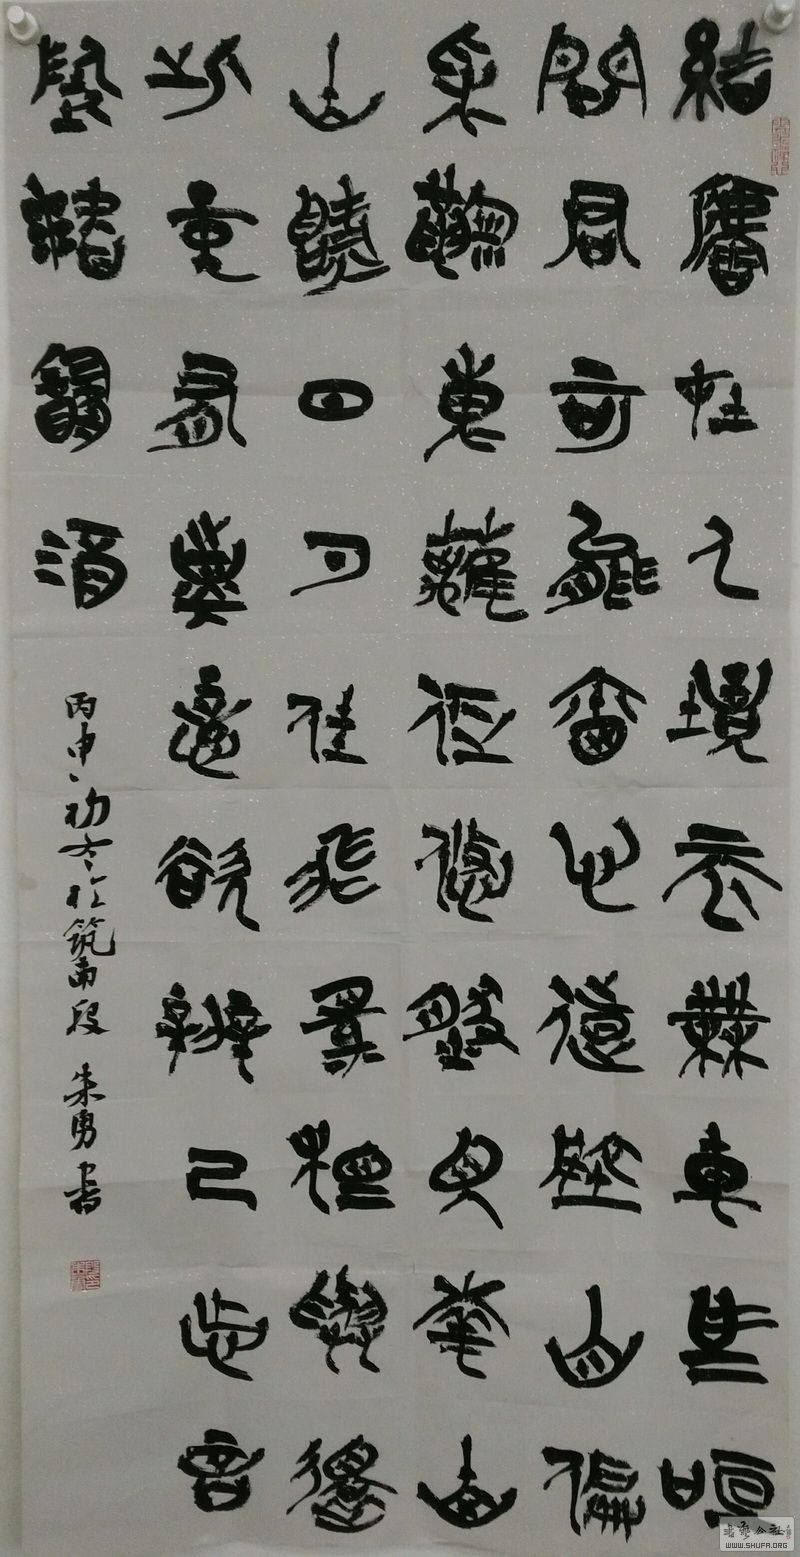 結廬在人境而無車馬喧
問君何能爾心遠地自偏
采菊東籬下悠然見南山
山氣日夕佳飛鳥相與還
此中有真意欲辨已忘言
丙申初冬於筑南段 朱勇書
书艺公社
WWW.SHUFA.ORG